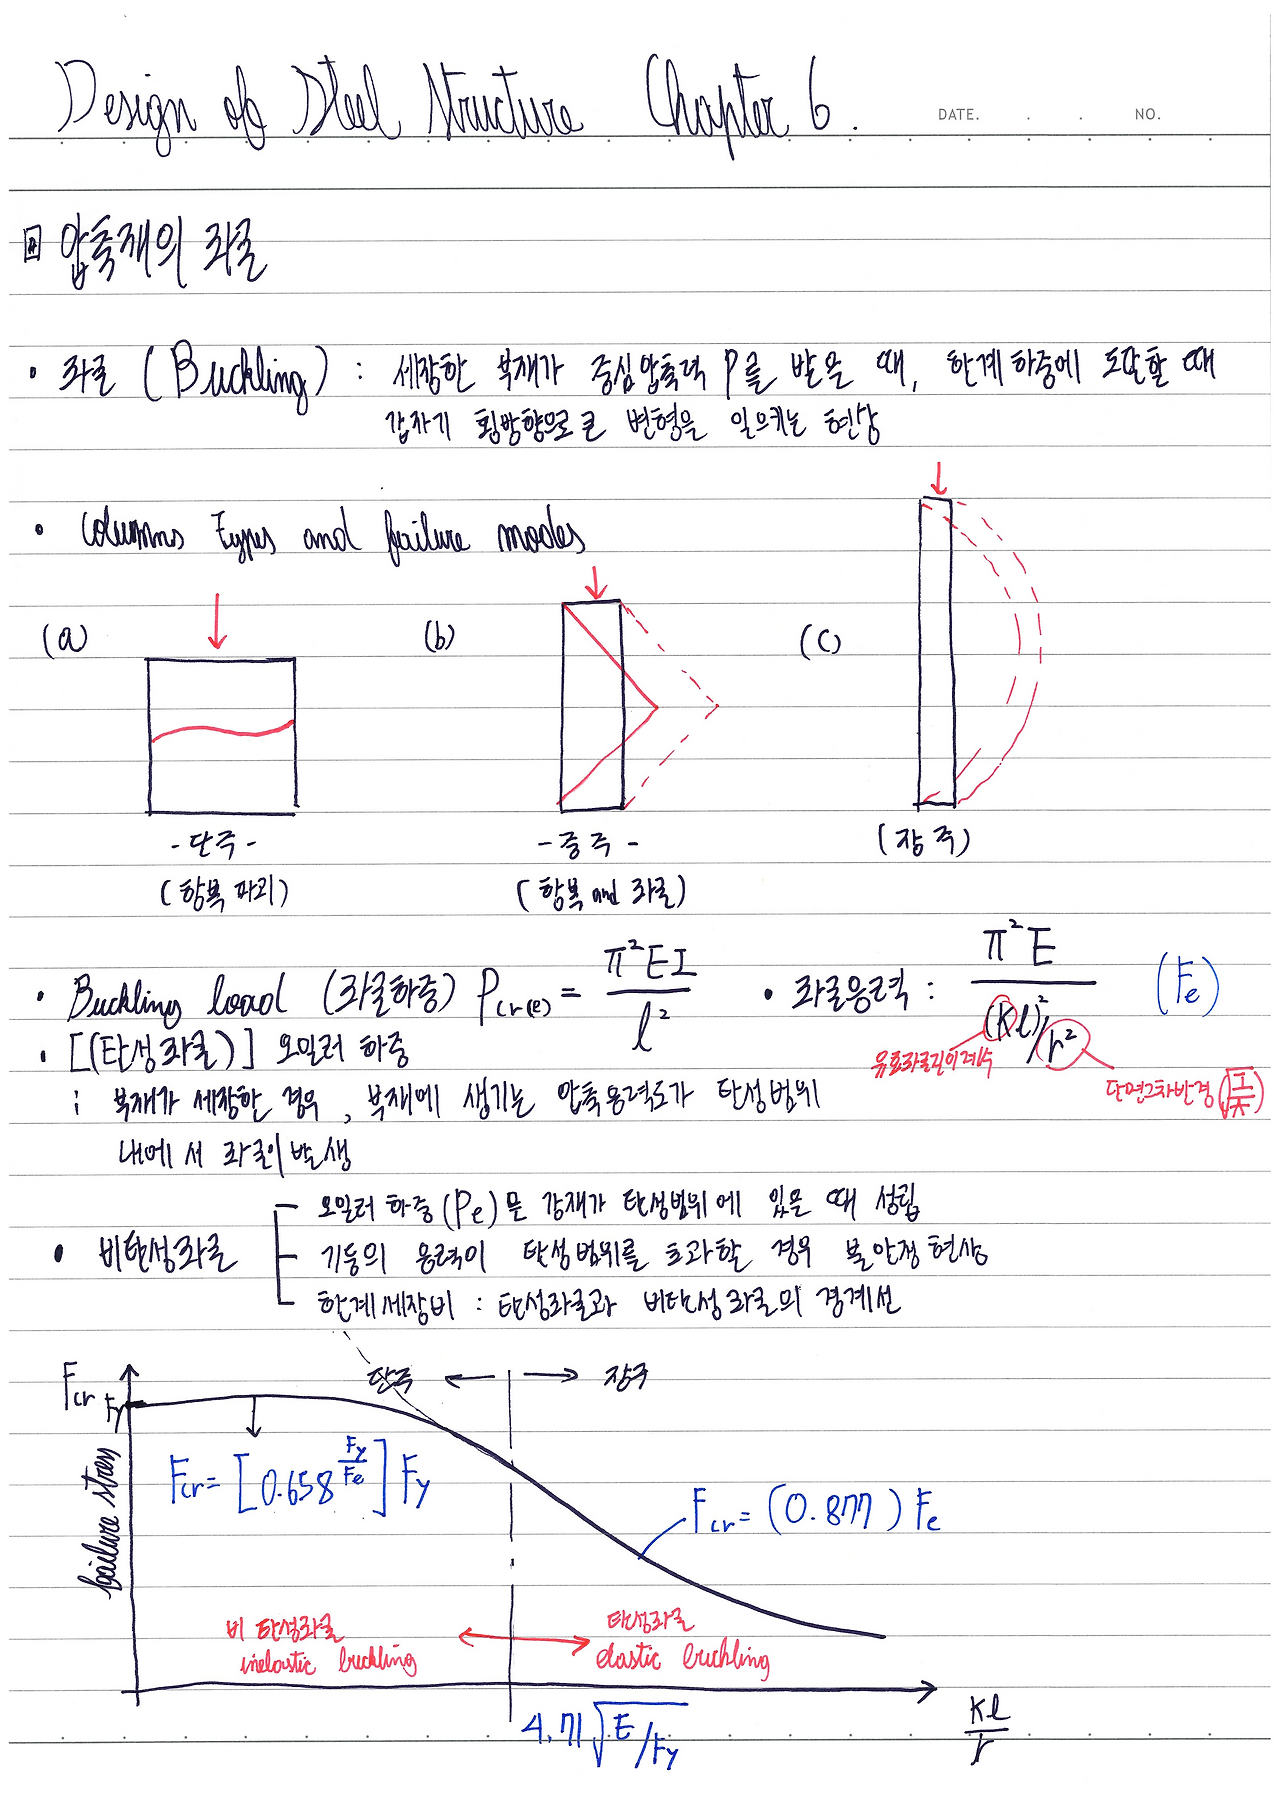 Design of Steel Structure Chapter 6.
DATE. . . NO.
압축재의 좌굴
• 좌굴 (Buckling) : 세장한 부재가 중심압축력 P를 받을 때, 한계하중에 도달할 때
갑자기 횡방향으로 큰 변형을 일으키는 현상
• Columns types and failure modes
(a) (b) (c)
-단주- -중주- (장주)
(항복 파괴) (항복 and 좌굴)
• Buckling load (좌굴하중) Pcr(e) = π²EI / l² • 좌굴응력 : π²E / (Kl)²/r² (Fe)
유효좌굴길이계수
단면2차반경(√I/A)
• [(탄성좌굴)] 오일러 하중
; 부재가 세장한 경우, 부재에 생기는 압축응력도가 탄성범위
내에서 좌굴이 발생
• 비탄성좌굴
오일러 하중(Pe)은 강재가 탄성범위에 있을 때 성립
기둥의 응력이 탄성범위를 초과할 경우 불안정 현상
한계세장비 : 탄성좌굴과 비탄성좌굴의 경계선
Fcr
Fy
단주 ← → 장주
failure stress
Fcr = [0.658^(Fy/Fe)] Fy
Fcr = (0.877) Fe
비탄성좌굴
inelastic buckling
탄성좌굴
elastic buckling
4.71√E/Fy
Kl/r